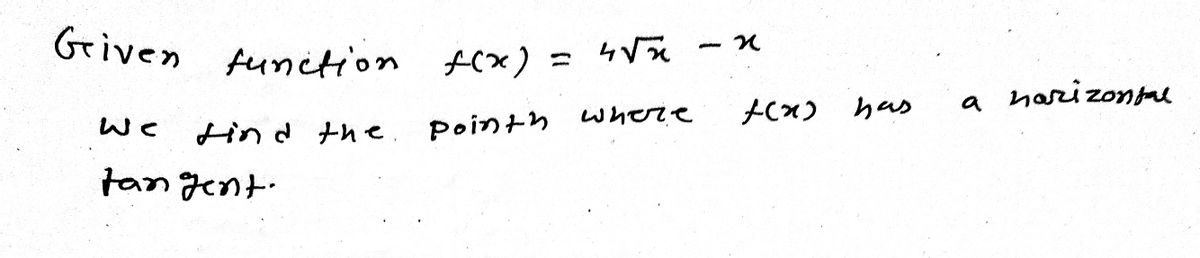 Given function f(x) = 4√x - x
We find the points where f(x) has a horizontal
tangent.